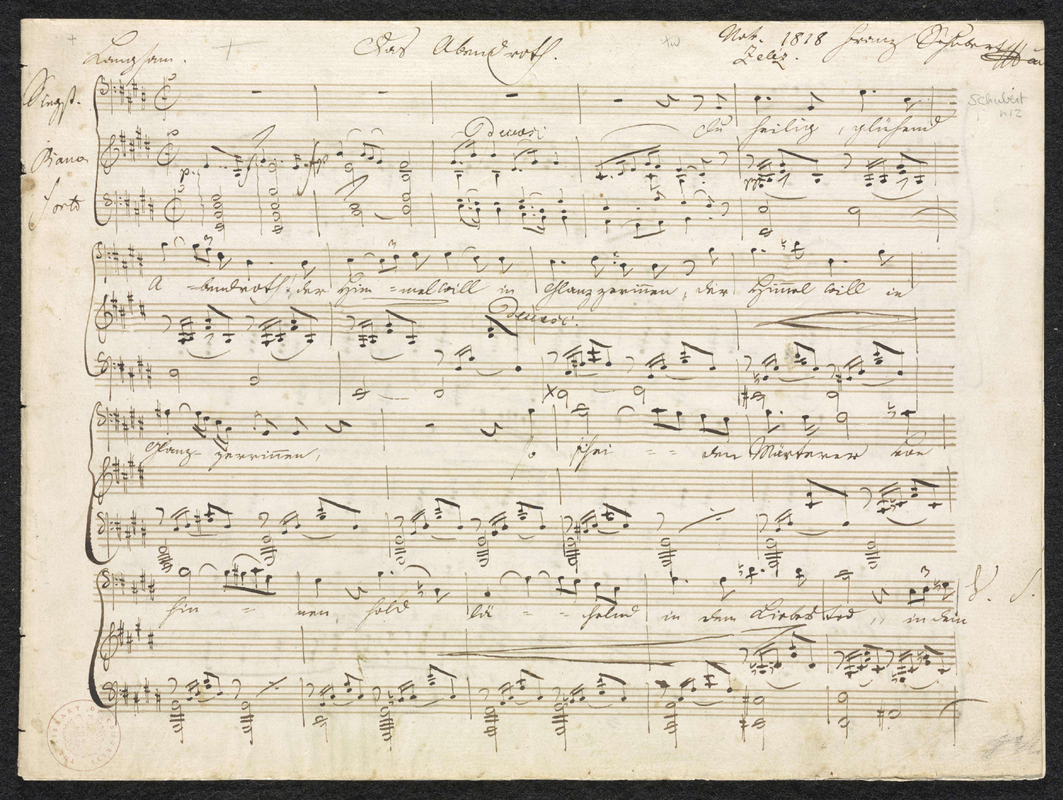 Langsam. Das Abendroth. Nov. 1818 Franz Schubert
Zeliz.
Singst.
Schubert
Du heilig, glühend
Piano
forte
decresc:
A-bendroth! der Him-mel will in Glanz zerrinnen, der Himmel will in
decresc:
Glanz- zerrinnen, so schei - - den Märterer von
hin - - nen, hold lä - - chelnd in dem Liebestod, in dem
V. S.